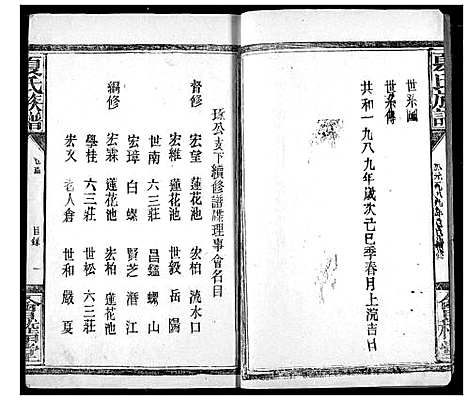 夏氏族譜
世系圖
世系傳
共和一九八九年歲次己巳季春月上浣吉日
會龍堂
夏氏族譜
目錄
一
會龍堂
公支下續修譜牒理事會名目
督修
宏望 蓮花池 宏柏 流水口
宏維 蓮花池 世毅 岳陽
世南 六三莊 昌鎰 螺山
宏璋 白螺 賢芝 潛江
編修
宏霖 蓮花池 宏柏 蓮花池
學桂 六三莊 世松 六三莊
宏文 老人倉 世和 嚴夏